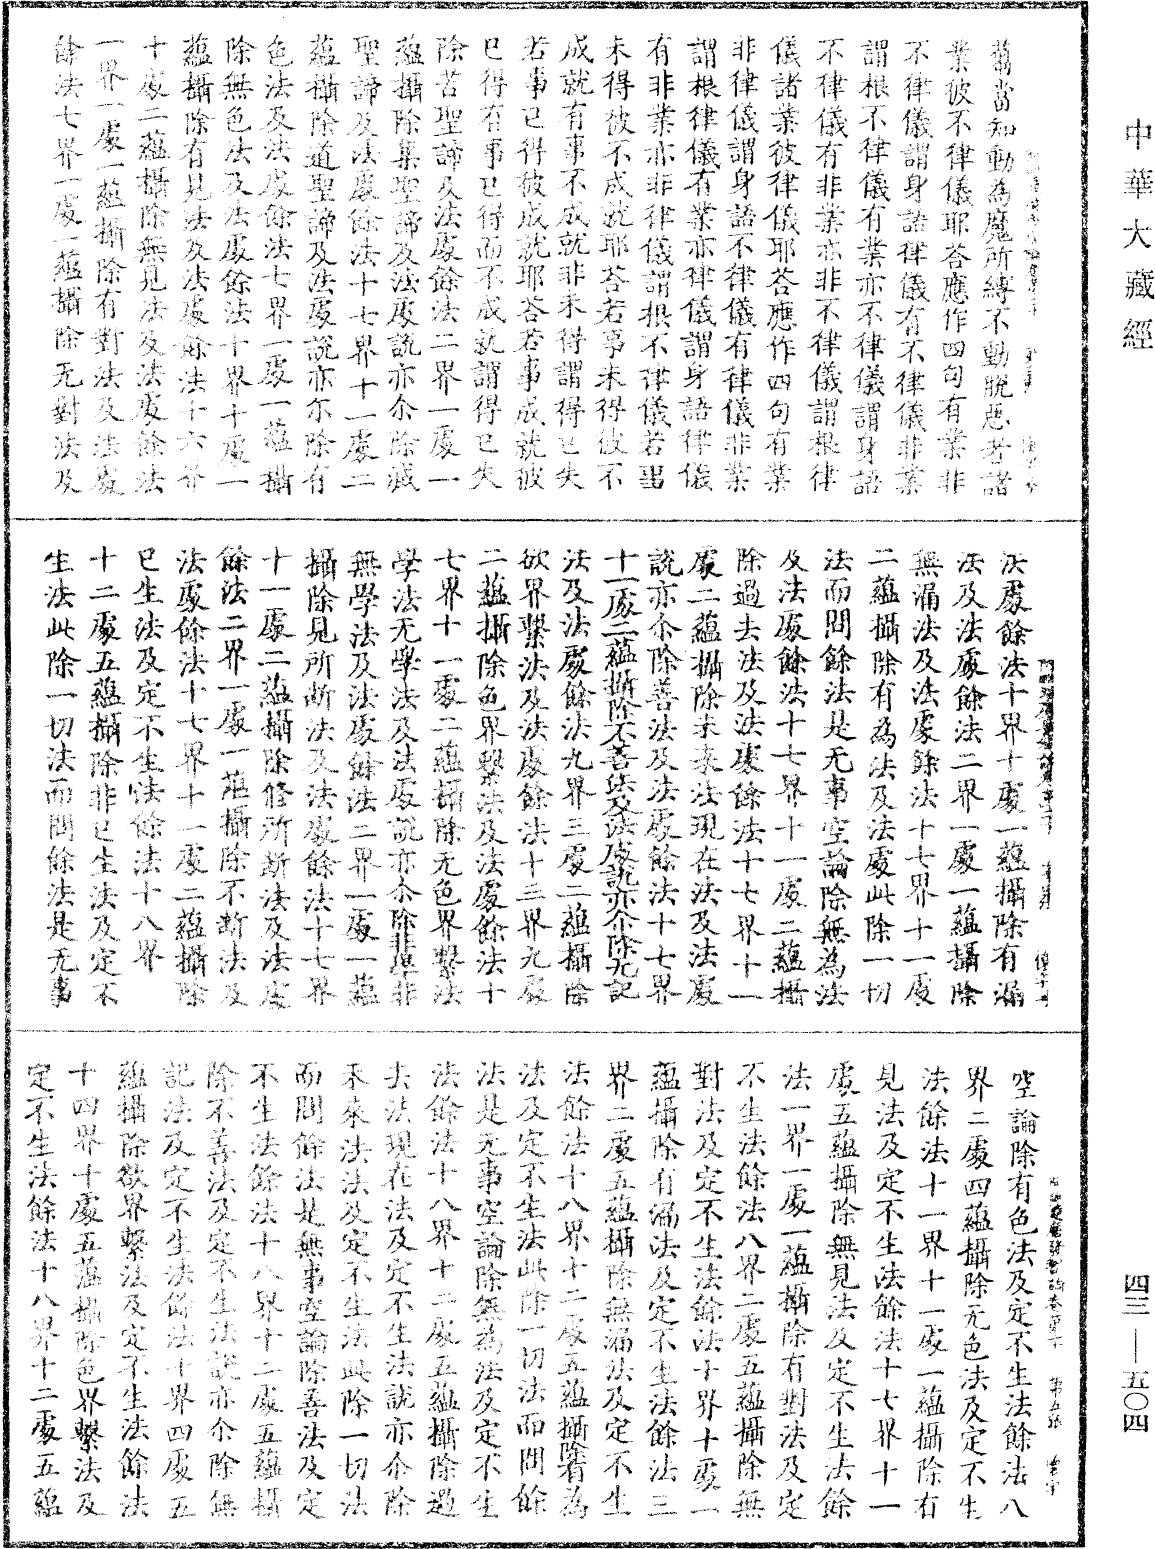 中華大藏經
蘊當知動為魔所縛不動脫惡若諸
業彼不律儀耶荅應作四句有業非
不律儀謂身語律儀有不律儀非業
謂根不律儀有業亦不律儀謂身語
不律儀有非業亦非不律儀謂根律
儀諸業彼律儀耶荅應作四句有業
非律儀謂身語不律儀有律儀非業
謂根律儀有業亦律儀謂身語律儀
有非業亦非律儀謂根不律儀若事
未得彼不成就耶荅若事未得彼不
成就有事不成就非未得謂得已失
若事已得彼成就耶荅若事成就彼
已得有事已得而不成就謂得已失
除苦聖諦及法處餘法二界一處一
蘊攝除集聖諦及法處說亦尒除滅
聖諦及法處餘法十七界十一處二
蘊攝除道聖諦及法處說亦尒除有
色法及法處餘法七界一處一蘊攝
除無色法及法處餘法十界十處一
蘊攝除有見法及法處餘法十六界
十處二蘊攝除無見法及法處餘法
一界一處一蘊攝除有對法及法處
餘法七界一處一蘊攝除无對法及
法處餘法十界十處一蘊攝除有漏
法及法處餘法二界一處一蘊攝除
無漏法及法處餘法十七界十一處
二蘊攝除有為法及法處此除一切
法而問餘法是无事空論除無為法
及法處餘法十七界十一處二蘊攝
除過去法及法處餘法十七界十一
處二蘊攝除未來法現在法及法處
說亦尒除善法及法處餘法十七界
十一處二蘊攝除不善法及法處說亦尒除无記
法及法處餘法九界三處二蘊攝除
欲界繫法及法處餘法十三界九處
二蘊攝除色界繫法及法處餘法十
七界十一處二蘊攝除无色界繫法
學法无學法及法處說亦尒除非學非
無學法及法處餘法二界一處一蘊
攝除見所斷法及法處餘法十七界
十一處二蘊攝除修所斷法及法處
餘法二界一處一蘊攝除不斷法及
法處餘法十七界十一處二蘊攝除
已生法及定不生法餘法十八界
十二處五蘊攝除非已生法及定不
生法此除一切法而問餘法是无事
空論除有色法及定不生法餘法八
界二處四蘊攝除无色法及定不生
法餘法十一界十一處一蘊攝除有
見法及定不生法餘法十七界十一
處五蘊攝除無見法及定不生法餘
法一界一處一蘊攝除有對法及定
不生法餘法八界二處五蘊攝除無
對法及定不生法餘法十界十處一
蘊攝除有漏法及定不生法餘法三
界二處五蘊攝除無漏法及定不生
法餘法十八界十二處五蘊攝除有為
法及定不生法此除一切法而問餘
法是无事空論除無為法及定不生
法餘法十八界十二處五蘊攝除過
去法現在法及定不生法說亦尒除
未來法法及定不生法此除一切法
而問餘法是無事空論除善法及定
不生法餘法十八界十二處五蘊攝
除不善法及定不生法說亦尒除無
記法及定不生法餘法十界四處五
蘊攝除欲界繫法及定不生法餘法
十四界十處五蘊攝除色界繫法及
定不生法餘法十八界十二處五蘊
四三—五〇四